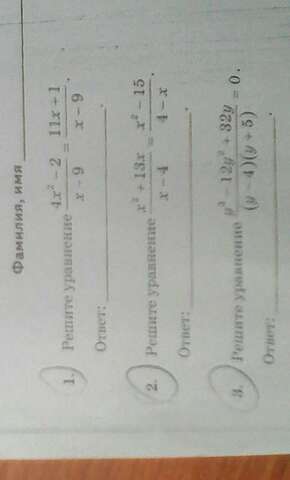 Фамилия, имя
1. Решите уравнение (4x² − 2)/(x − 9) = (11x + 1)/(x − 9).
Ответ:
2. Решите уравнение (x² + 13x)/(x − 4) = (x² − 15)/(4 − x).
Ответ:
3. Решите уравнение (y³ − 12y² + 32y)/((y − 4)(y + 5)) = 0.
Ответ: